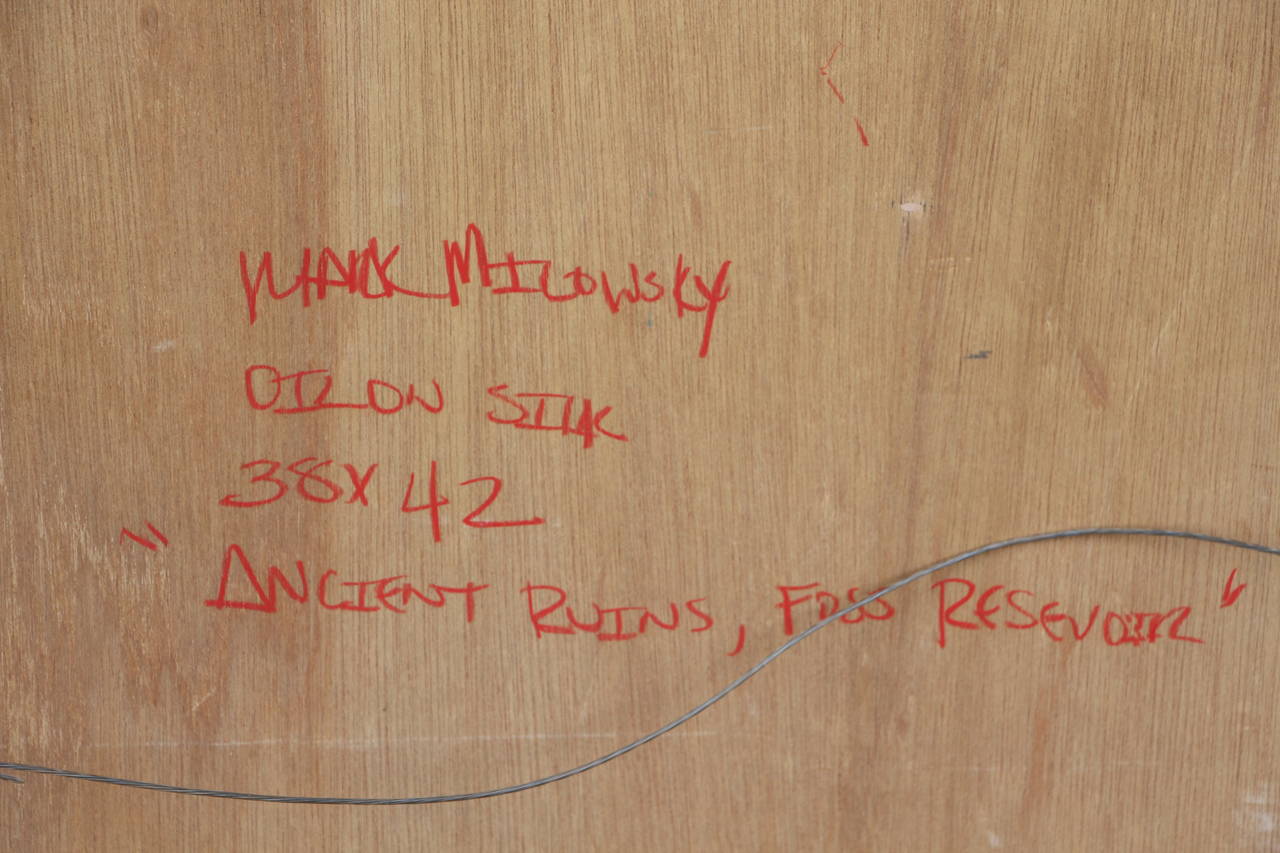 MARK MILOWSKY
OIL ON SILK
38X42
"ANCIENT RUINS, FOSS RESEVOIR"